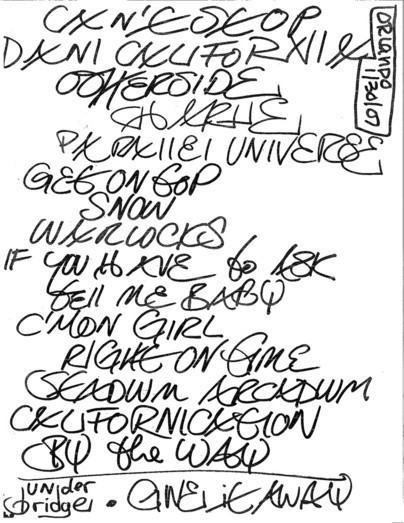 CAN'T STOP
DANI CALIFORNIA
OTHERSIDE
CHARLIE
PARALLEL UNIVERSE
GET ON TOP
SNOW
WARLOCKS
IF YOU HAVE to ASK
TELL ME BABY
C'MON GIRL
RIGHT ON TIME
STADIUM ARCADIUM
CALIFORNICATION
BY the WAY
UNder bridge • GIVE it AWAY
ORLANDO
1/30/07